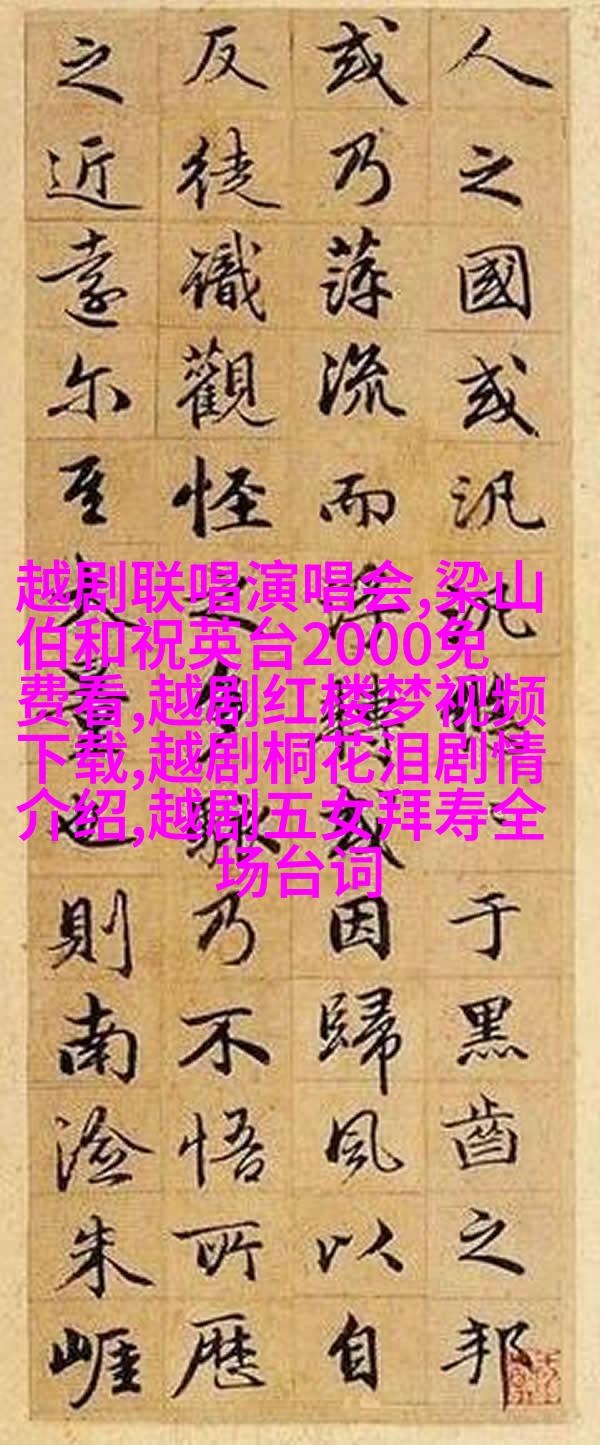 人之國或汎汎悠〻于黑齒之邦
或乃萍流而浮轉或因歸風以自
反徒識觀怪之多駭乃不悟所歷
之近遠尔至大量也則南澰朱崖
越剧联唱演唱会,梁山
伯和祝英台2000免
费看,越剧红楼梦视频
下载,越剧桐花泪剧情
介绍,越剧五女拜寿全
场台词